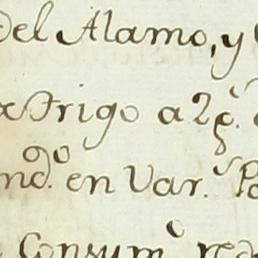 del Alamo, y
Trigo a 2 p.s
nd.o en Var.s
Consum.o